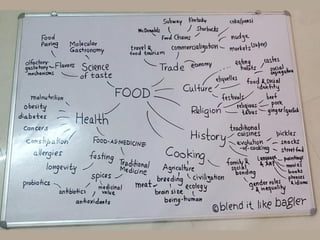 Subway
Starbucks
coke/pepsi
McDonalds
Food Chains
nudge
Food
Pairing
Molecular
Gastronomy
travel &
food tourism
commercialisation
markets (super)
olfactory
gustatory
mechanisms
Flavors
Science
of taste
Trade
economy
eating
habits
tastes
social
segregation
etiquettes
Culture
food & social
identity
FOOD
festivals
malnutrition
obesity
diabetes
cancers
constipation
allergies
Health
Religion
religious
food
beef
pork
ginger/garlic
History
traditional
cuisines
evolution
of cooking
pickles
snacks
street food
FOOD-AS-MEDICINE
Cooking
fasting
Traditional
Medicine
Agriculture
family &
social
bonding
Language
& ART
paintings
movies
books
longevity
spices
breeding
civilization
probiotics
antibiotics
medicinal
value
meat
brain size
ecology
gender roles
& inequality
antioxidants
being-human
©blend it like bagler